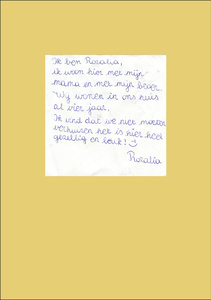 Ik ben Rosalia,
ik woon hier met mijn
mama en met mijn broer.
Wij wonen in ons huis
al vier jaar.
Ik vind dat we niet moeten
verhuizen het is hier heel
gezellig en leuk!
Rosalia